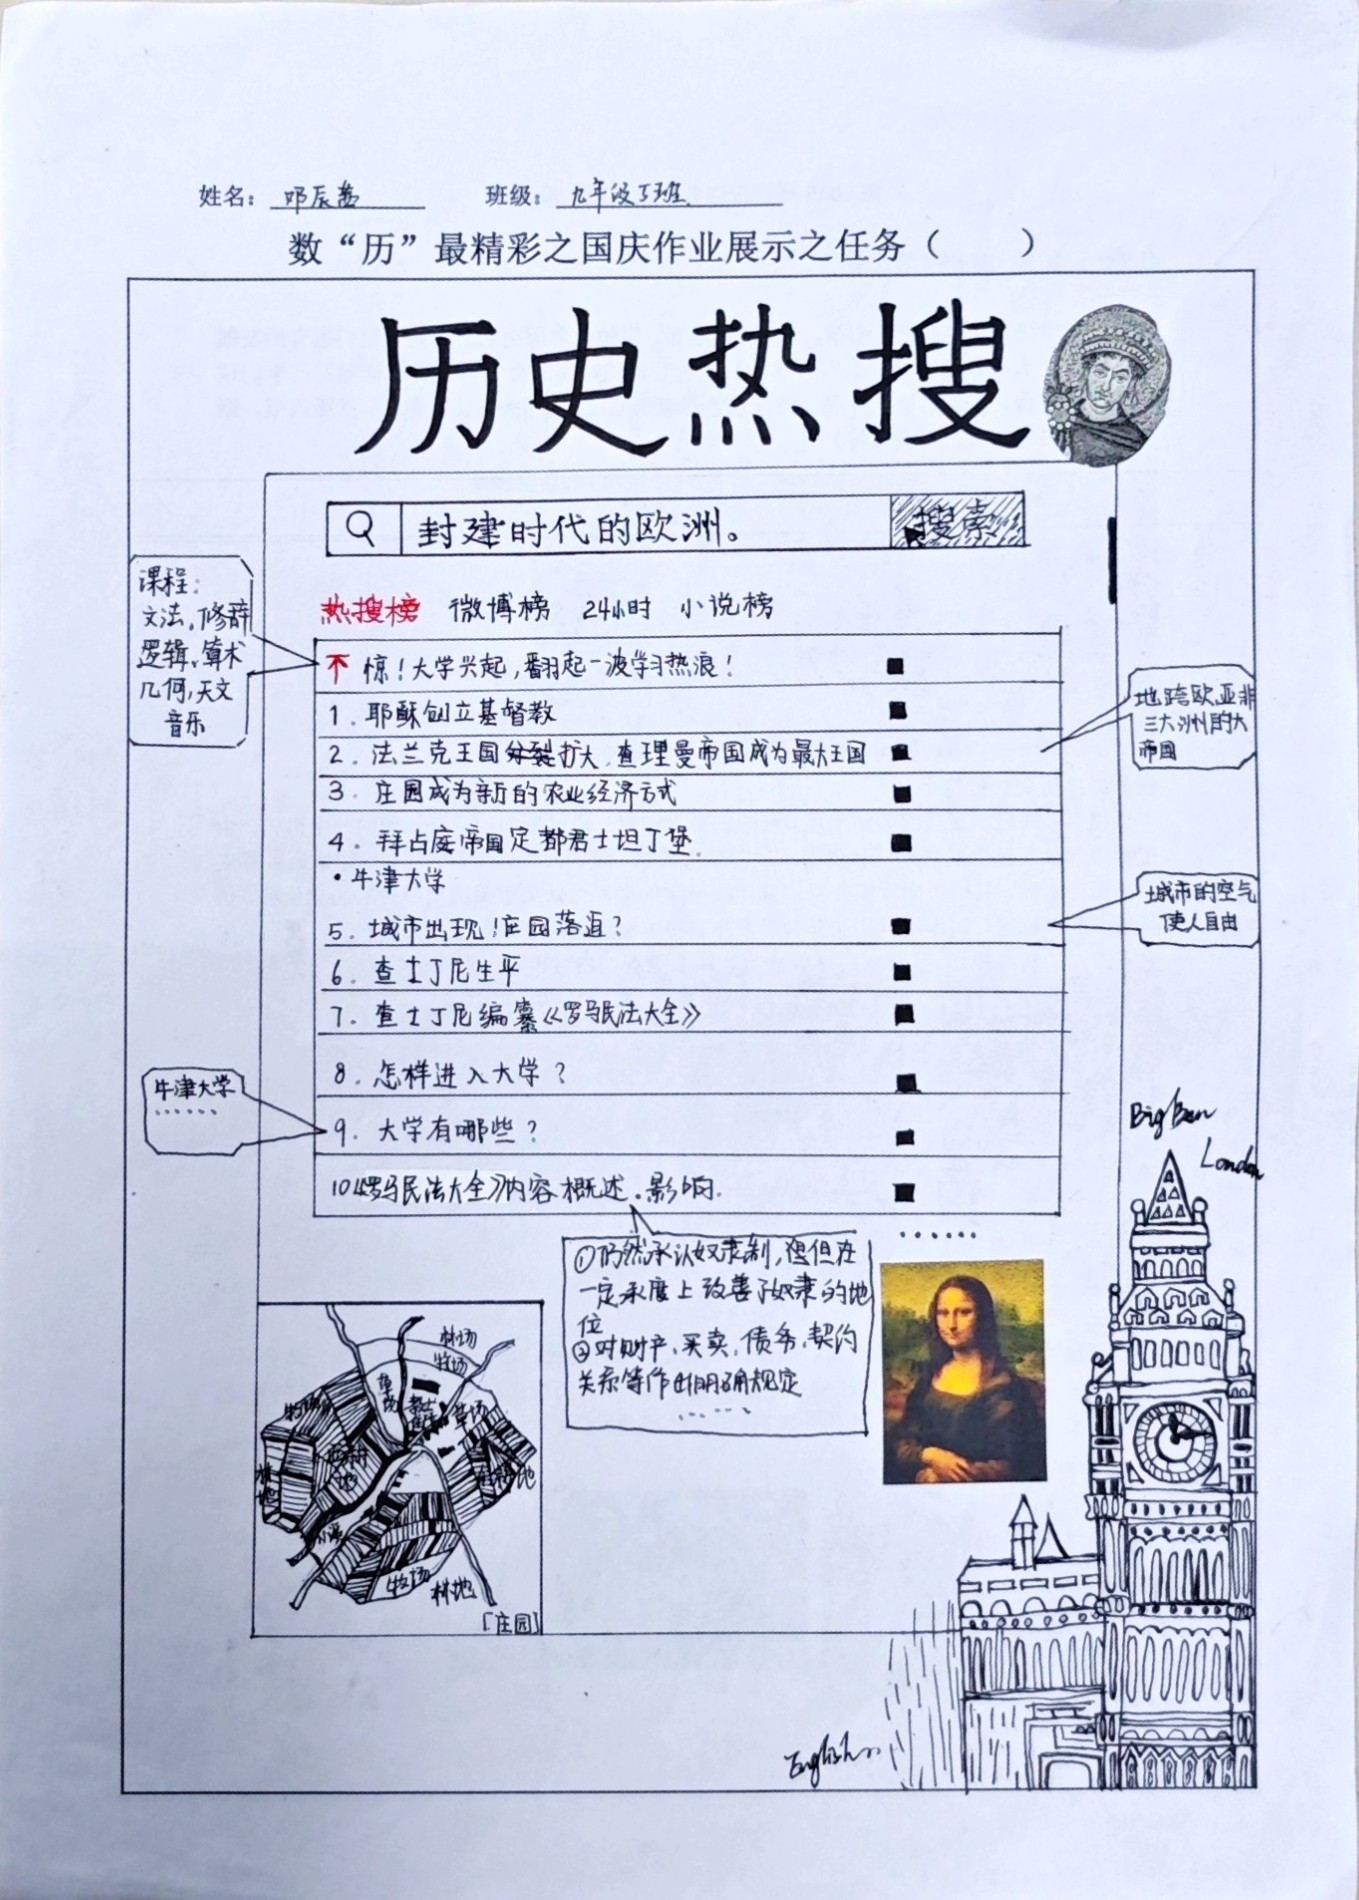 姓名： 邓辰茜 班级：九年级5班
数“历”最精彩之国庆作业展示之任务（ ）
历史热搜
封建时代的欧洲。 搜索
热搜榜 微博榜 24小时 小说榜
不 惊！大学兴起，翻起一波学习热浪！
1. 耶稣创立基督教
2. 法兰克王国分裂扩大，查理曼帝国成为最大王国
3. 庄园成为新的农业经济方式
4. 拜占庭帝国定都君士坦丁堡.
·牛津大学
5. 城市出现！庄园落追？
6. 查士丁尼生平
7. 查士丁尼编纂《罗马民法大全》
8. 怎样进入大学？
9. 大学有哪些？
10《罗马民法大全》内容概述。影响.
......
课程：
文法，修辞
逻辑，算术
几何，天文
音乐
地跨欧亚非
三大洲的大
帝国
城市的空气
使人自由
牛津大学
......
①仍然承认奴隶制，但在
一定承度上改善了奴隶的地
位
②对财产，买卖，债务，契约
关系等作出明确规定
......
林场
牧场
草场
牧场
林地
[庄园]
Big Ben
London
English